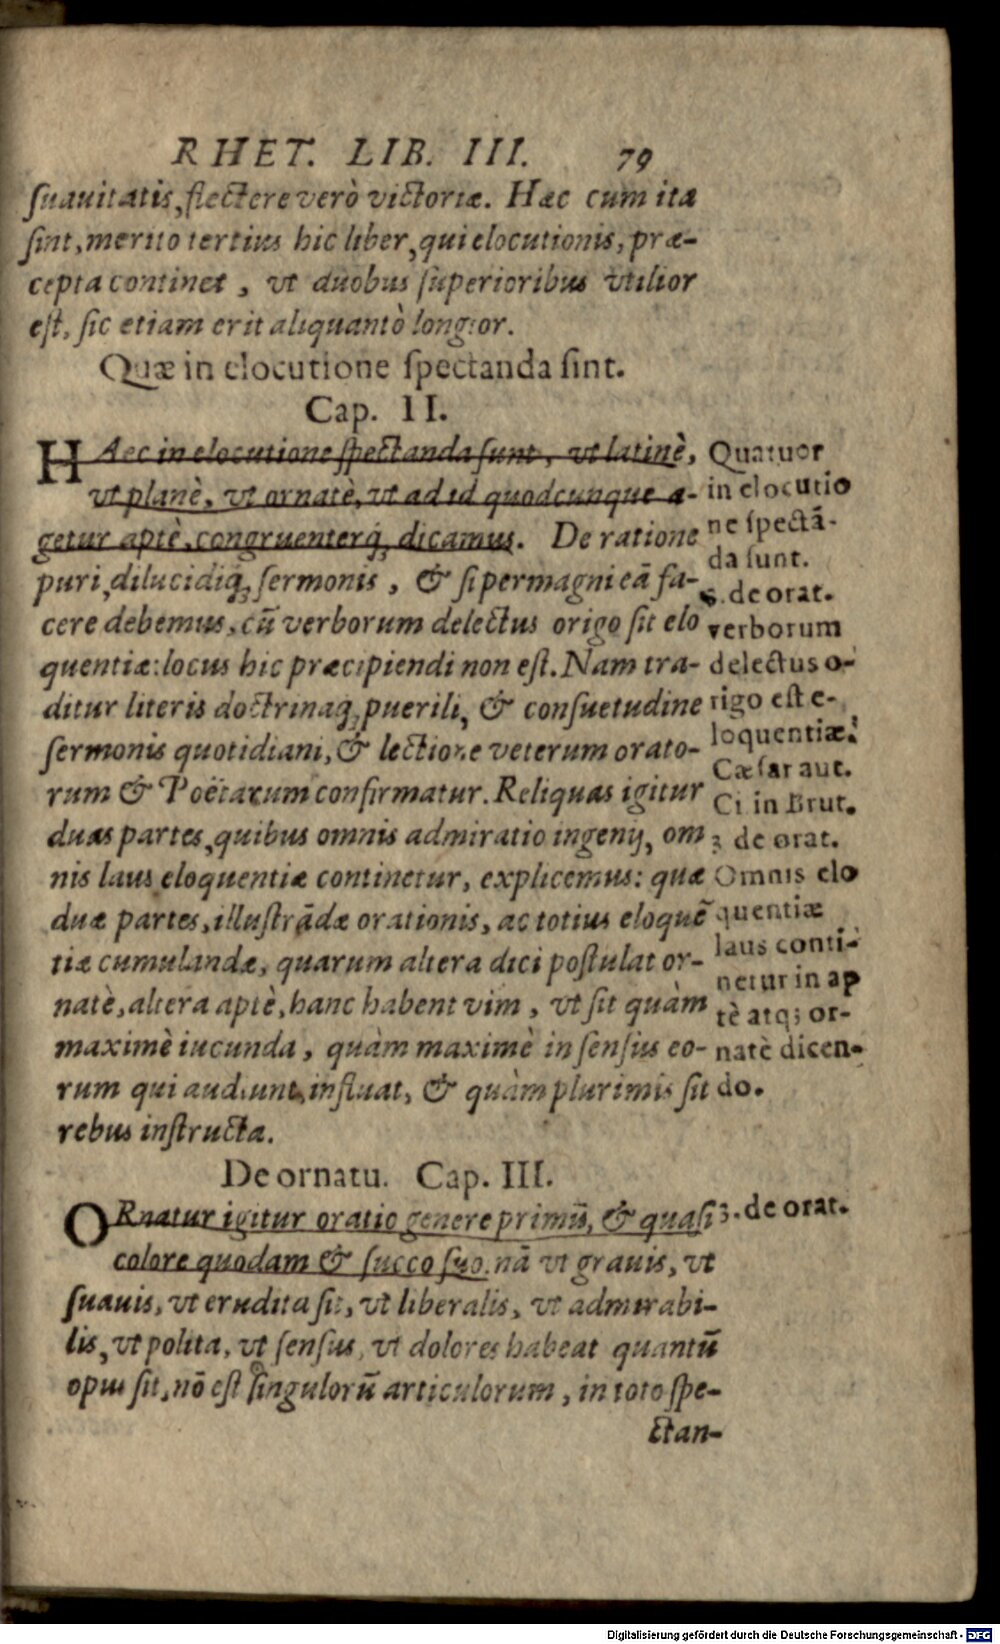 RHET. LIB. III. 79
suauitatis, flectere verò victoriæ. Hæc cum ita
sint, merito tertius hic liber, qui elocutionis, præ-
cepta continet, vt duobus superioribus vtilior
est, sic etiam erit aliquantò longior.
Quæ in elocutione spectanda sint.
Cap. II.
HAec in elocutione spectanda sunt, vt latinè,
vt planè, vt ornatè, vt ad id quodcunque a-
getur aptè, congruenterq́; dicamus. De ratione
puri, dilucidiq́; sermonis, & si permagni eã fa-
cere debemus, cũ verborum delectus origo sit elo
quentiæ: locus hic præcipiendi non est. Nam tra-
ditur literis doctrinaq́; puerili, & consuetudine
sermonis quotidiani, & lectione veterum orato-
rum & Poëtarum confirmatur. Reliquas igitur
duas partes, quibus omnis admiratio ingenij, om
nis laus eloquentiæ continetur, explicemus: quæ
duæ partes, illustrãdæ orationis, ac totius eloquẽ
tiæ cumulandæ, quarum altera dici postulat or-
natè, altera aptè, hanc habent vim, vt sit quàm
maximè iucunda, quàm maximè in sensus eo-
rum qui audiunt, influat, & quàm plurimis sit
rebus instructa.
Quatuor
in elocutio
ne spectã-
da sunt.
3. de orat.
verborum
delectus o-
rigo est e-
loquentiæ.
Cæsar aut.
Ci in Brut.
3 de orat.
Omnis elo
quentiæ
laus conti-
netur in ap
tè atq; or-
natè dicen-
do.
De ornatu. Cap. III.
ORnatur igitur oratio genere primũ, & quasi
colore quodam & succo suo. nã vt grauis, vt
suauis, vt erudita sit, vt liberalis, vt admirabi-
lis, vt polita, vt sensus, vt dolores habeat quantũ
opus sit, nõ est singulorũ articulorum, in toto spe-
ctan-
3. de orat.
Digitalisierung gefördert durch die Deutsche Forschungsgemeinschaft - DFG